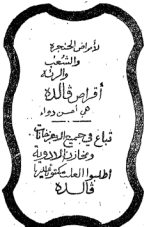 لأمراض الحنجرة
والشعب
والرئة
أقراص ڤالده
هي أحسن دواء
تباع في جميع الاجزخانات
ومخازن الادوية
اطلبوا العلب مكتوب عليها
ڤالده